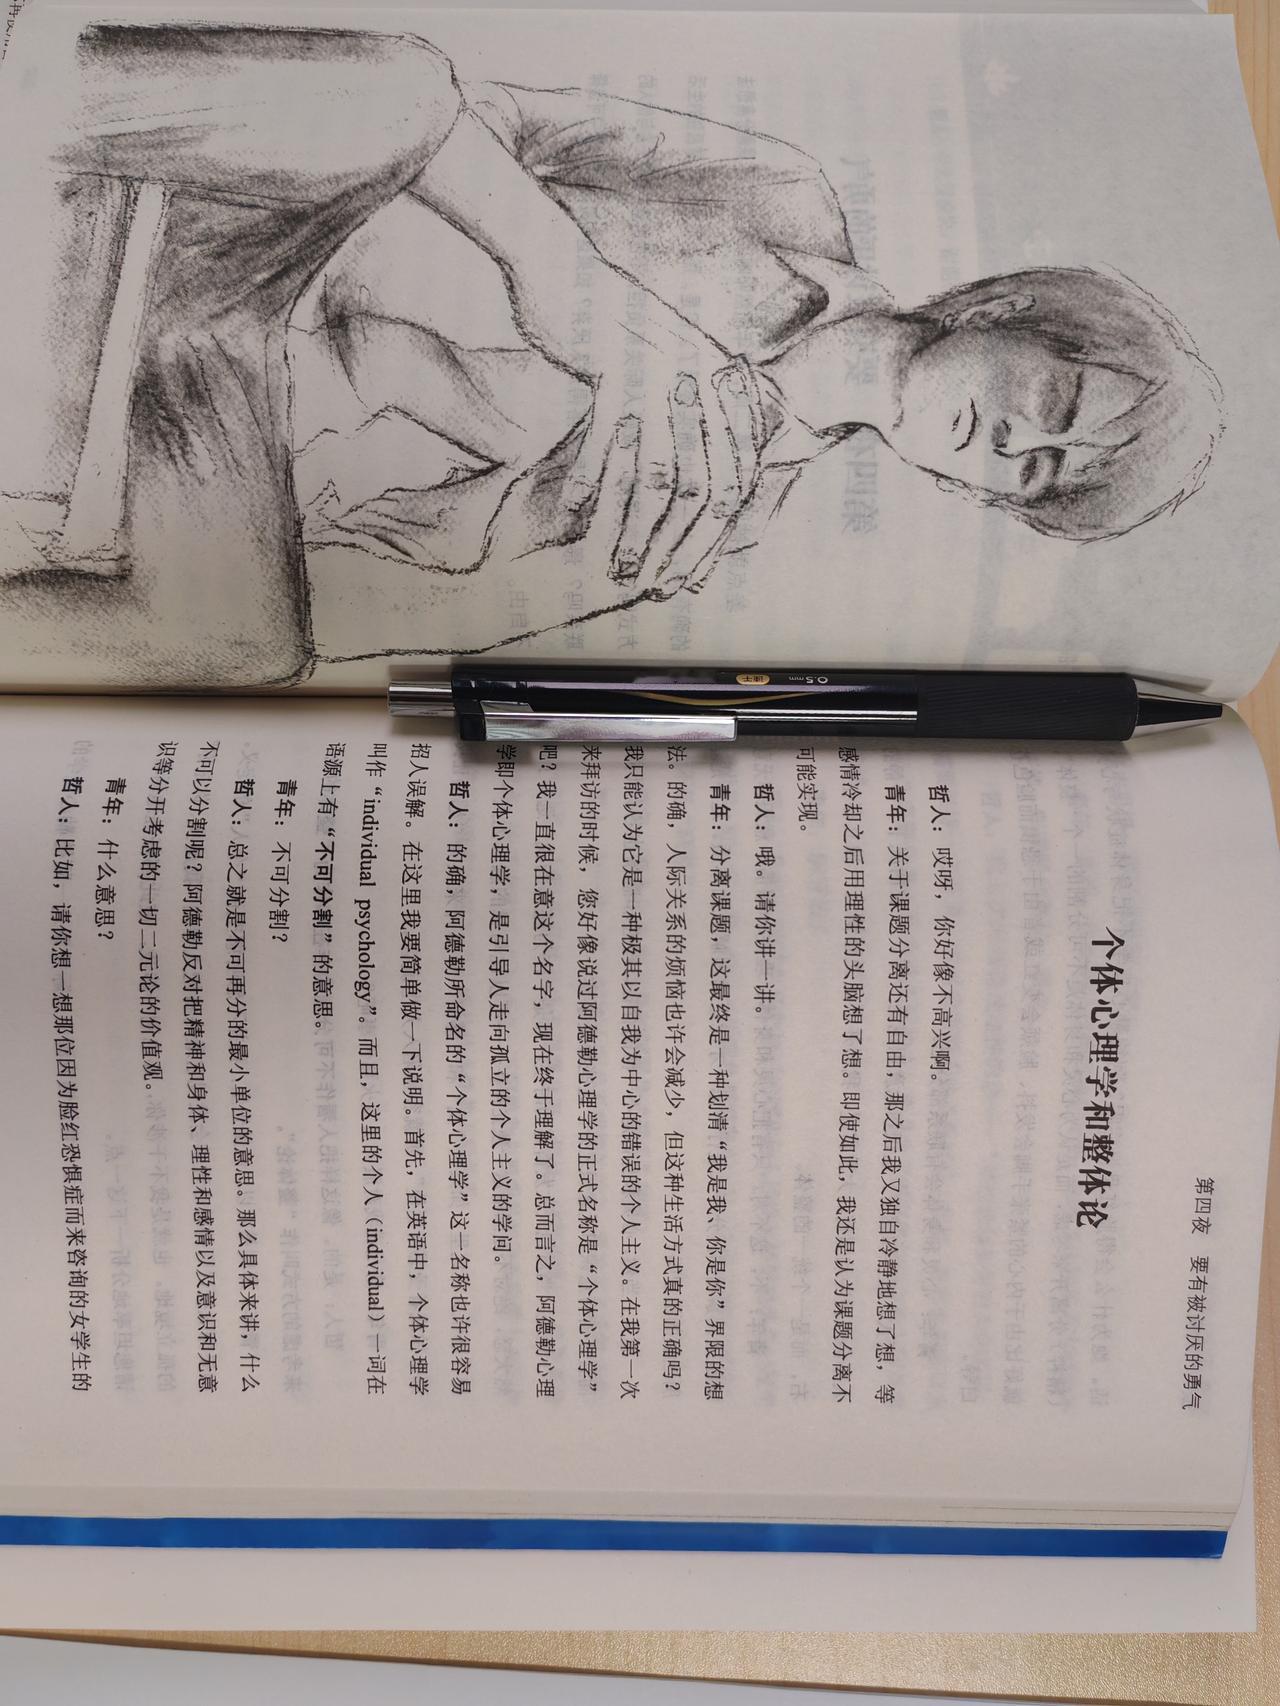 第四夜 要有被讨厌的勇气
个体心理学和整体论
哲人：哎呀，你好像不高兴啊。
青年：关于课题分离还有自由，那之后我又独自冷静地想了想，等
感情冷却之后用理性的头脑想了想。即使如此，我还是认为课题分离不
可能实现。
哲人：哦。请你讲一讲。
青年：分离课题，这最终是一种划清“我是我、你是你”界限的想
法。的确，人际关系的烦恼也许会减少，但这种生活方式真的正确吗？
我只能认为它是一种极其以自我为中心的错误的个人主义。在我第一次
来拜访的时候，您好像说过阿德勒心理学的正式名称是“个体心理学”
吧？我一直很在意这个名字，现在终于理解了。总而言之，阿德勒心理
学即个体心理学，是引导人走向孤立的个人主义的学问。
哲人：的确，阿德勒所命名的“个体心理学”这一名称也许很容易
招人误解。在这里我要简单做一下说明。首先，在英语中，个体心理学
叫作“individual psychology”。而且，这里的个人（individual）一词在
语源上有“不可分割”的意思。
青年：不可分割？
哲人：总之就是不可再分的最小单位的意思。那么具体来讲，什么
不可以分割呢？阿德勒反对把精神和身体、理性和感情以及意识和无意
识等分开考虑的一切二元论的价值观。
青年：什么意思？
哲人：比如，请你想一想那位因为脸红恐惧症而来咨询的女学生的
0.5mm
速干